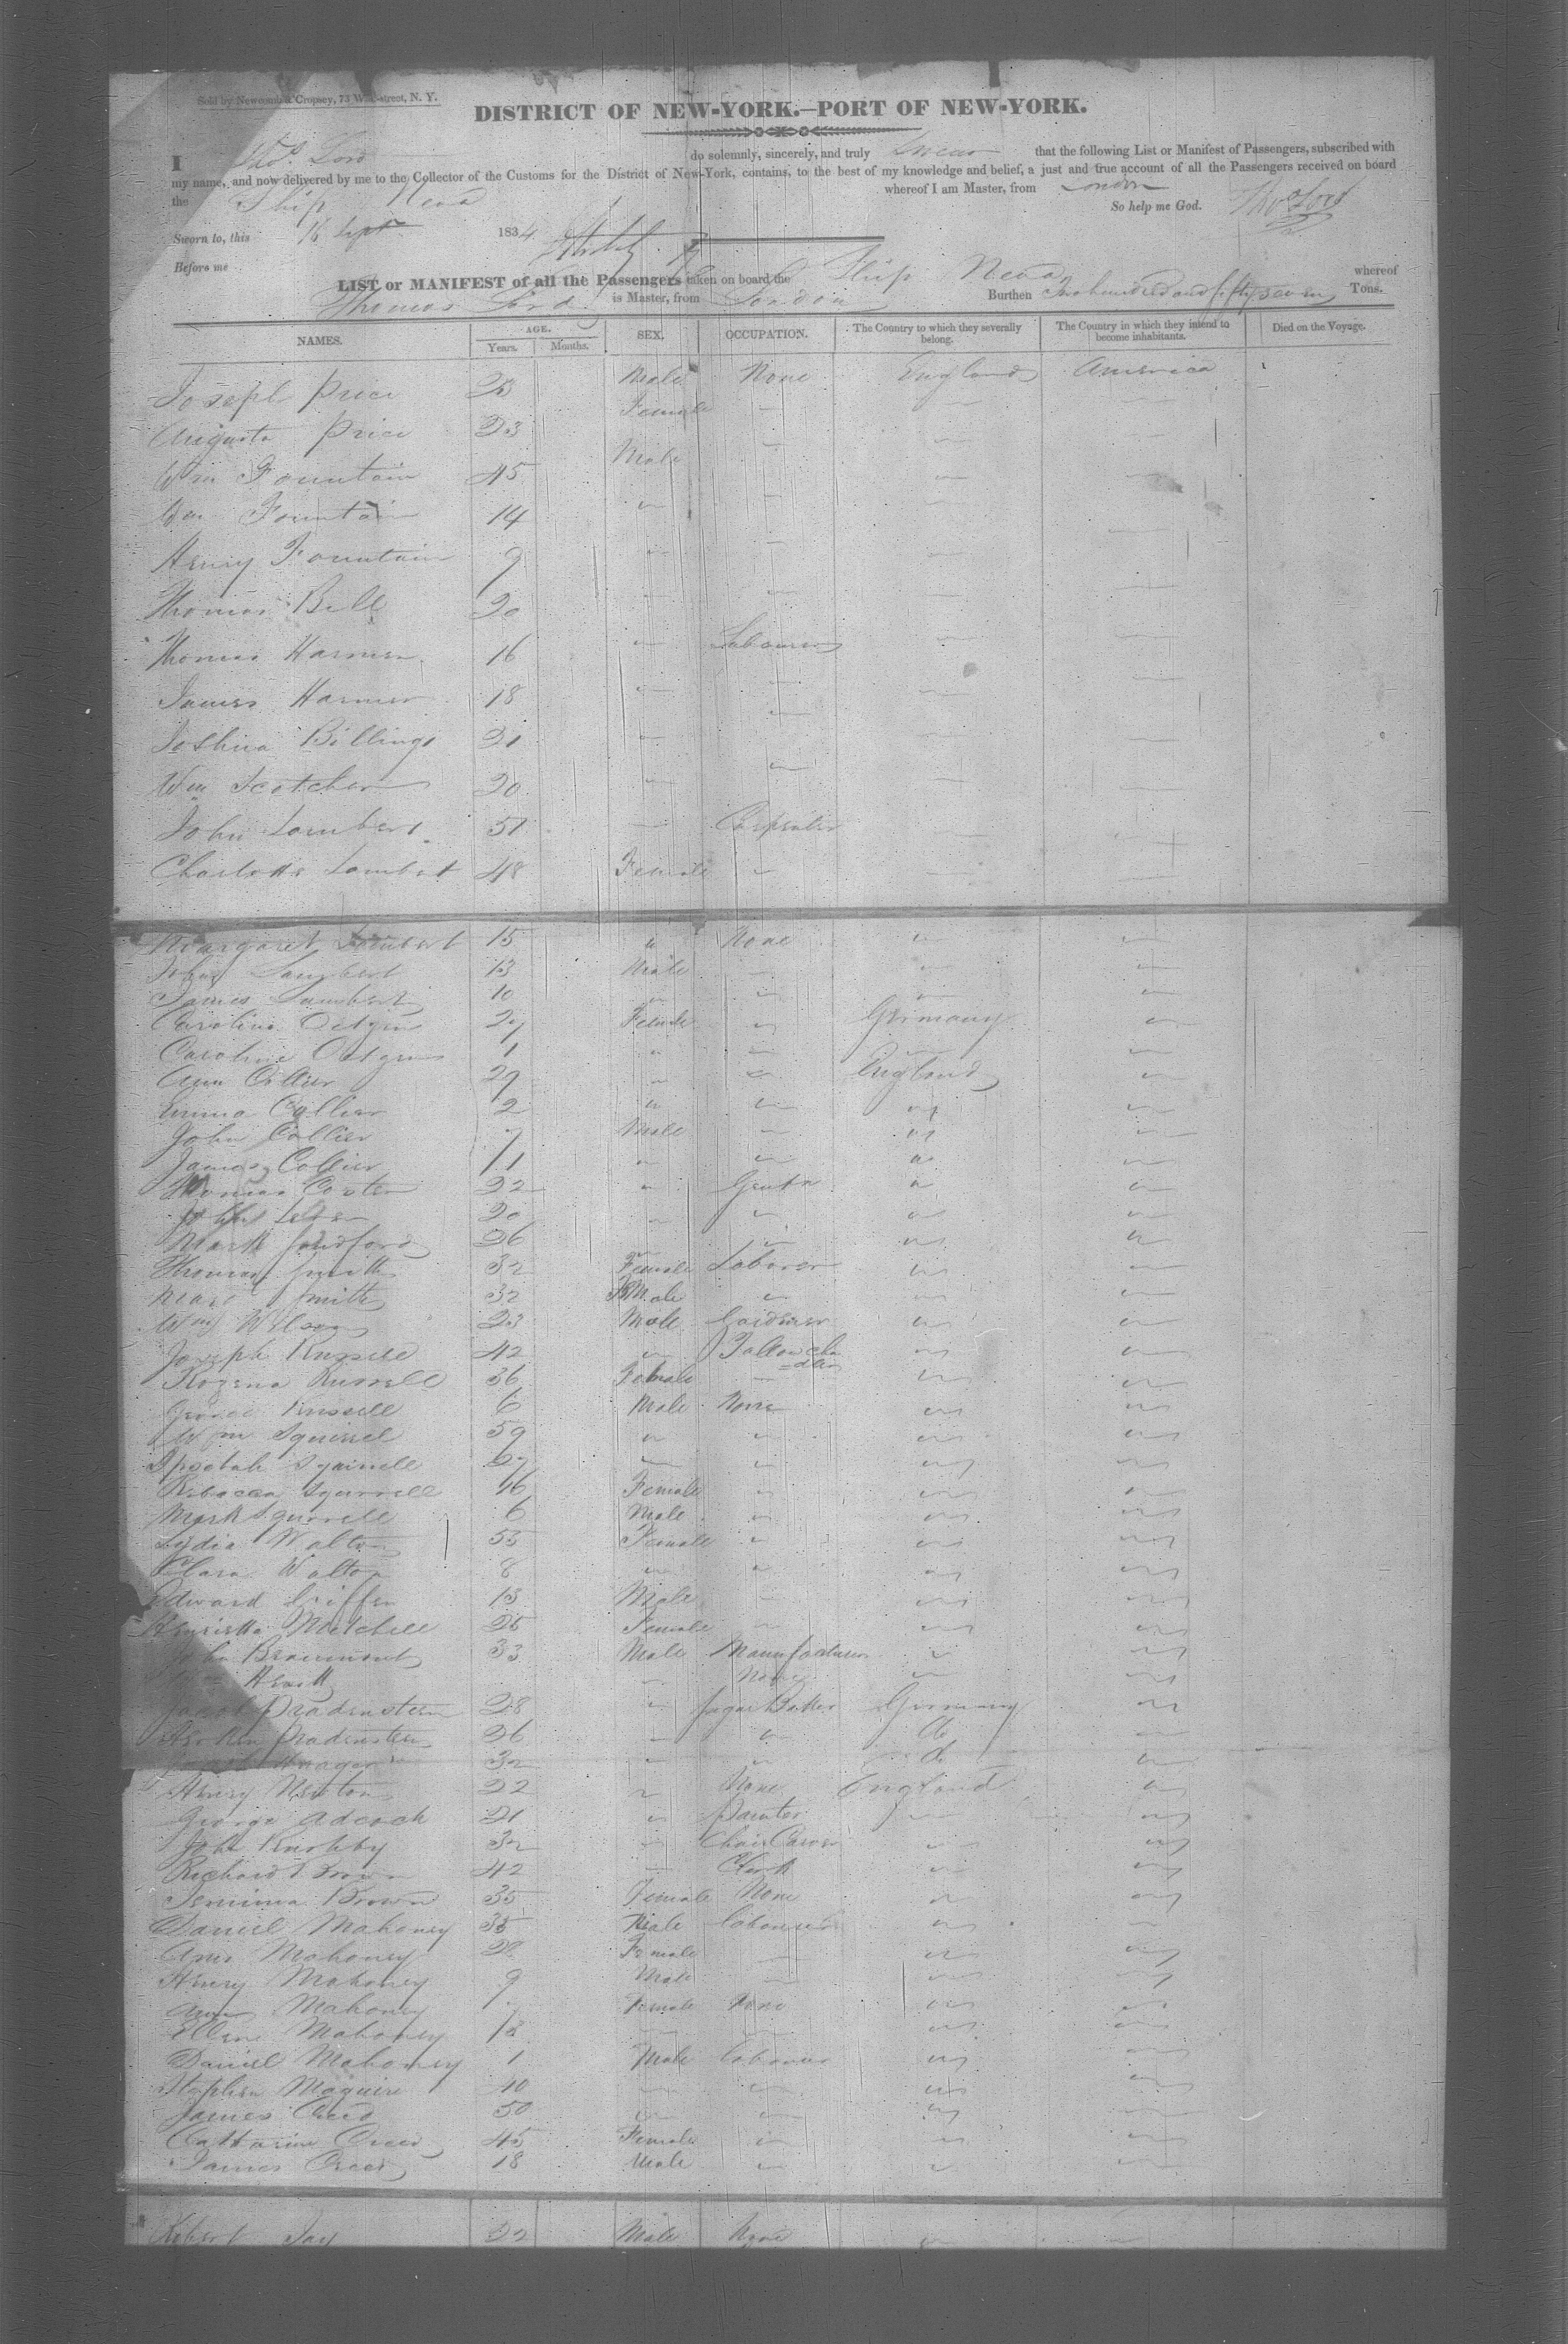 Sold by Newcomb & Cropsey, 73 Wall-street, N. Y.
DISTRICT OF NEW-YORK.—PORT OF NEW-YORK.
I Thos. Lord do solemnly, sincerely, and truly Swear that the following List or Manifest of Passengers, subscribed with
my name, and now delivered by me to the Collector of the Customs for the District of New-York, contains, to the best of my knowledge and belief, a just and true account of all the Passengers received on board
the Ship Neva whereof I am Master, from London
So help me God. Thos Lord
Sworn to, this 16 Sept 1834
Before me
LIST or MANIFEST of all the Passengers taken on board the Ship Neva whereof
Thomas Lord is Master, from London Burthen Two hundred and fifty seven Tons.
NAMES. AGE. Years. Months. SEX. OCCUPATION. The Country to which they severally belong. The Country in which they intend to become inhabitants. Died on the Voyage.
Joseph Price 25 Male None England America
Augusta Price 23 Female
Wm Fountain 45 Male
Wm Fountain 14
Henry Fountain 9
Thomas Bell 20
Thomas Harmer 16 Labourer
James Harmer 18
Joshua Billings 21
Wm Scotcher 20
John Lambert 51 Carpenter
Charlotte Lambert 48 Female
Margaret Lambert 15 " None
John Lambert 13 Male
James Lambert 10
Caroline 27 Female Germany
Caroline 1
Ann Collier 29 England
Emma Collier 2
John Collier 7 Male
James Collier 11
Thomas 22 Gentn
John 20
Mark Sandford 26
Thomas Smith 32 Laborer
Smith 32
Wm Wilson 23 Male Gardener
Joseph Russell 42 Tallow chandler
Rozena Russell 36 Female
George Russell 6 Male None
Wm Squirrel 59
Squirrell 27
Rebecca Squirrell 46 Female
Mark Squirrell 6 Male
Lydia Walton 55 Female
Clara Walton 8
Edward Griffin 13 Male
Henrietta Mitchell 25 Female
John Beaumont 33 Male Manufacturer
None
Jacob 28 Sugar Baker Germany
26 do
32 do
Henry Newton 22 None England
George Adcock 21 Painter
John 32 Chair Carver
Richard Brown 42 Clerk
Jemima Brown 35 Female None
Daniel Mahoney 35 Male Labourer
Ann Mahoney 28 Female
Henry Mahoney 9 Male
Ann Mahoney 7 Female None
Ellen Mahoney
Daniel Mahoney 1 Male Labourer
Stephen Maguire 40
James Creed 50
Catharine Creed 45 Female
James Creed 18 Male
Robert Jay 22 Male None